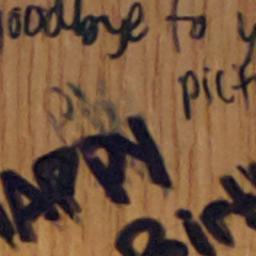 goodbye to y
pict
HAPPY
Birth